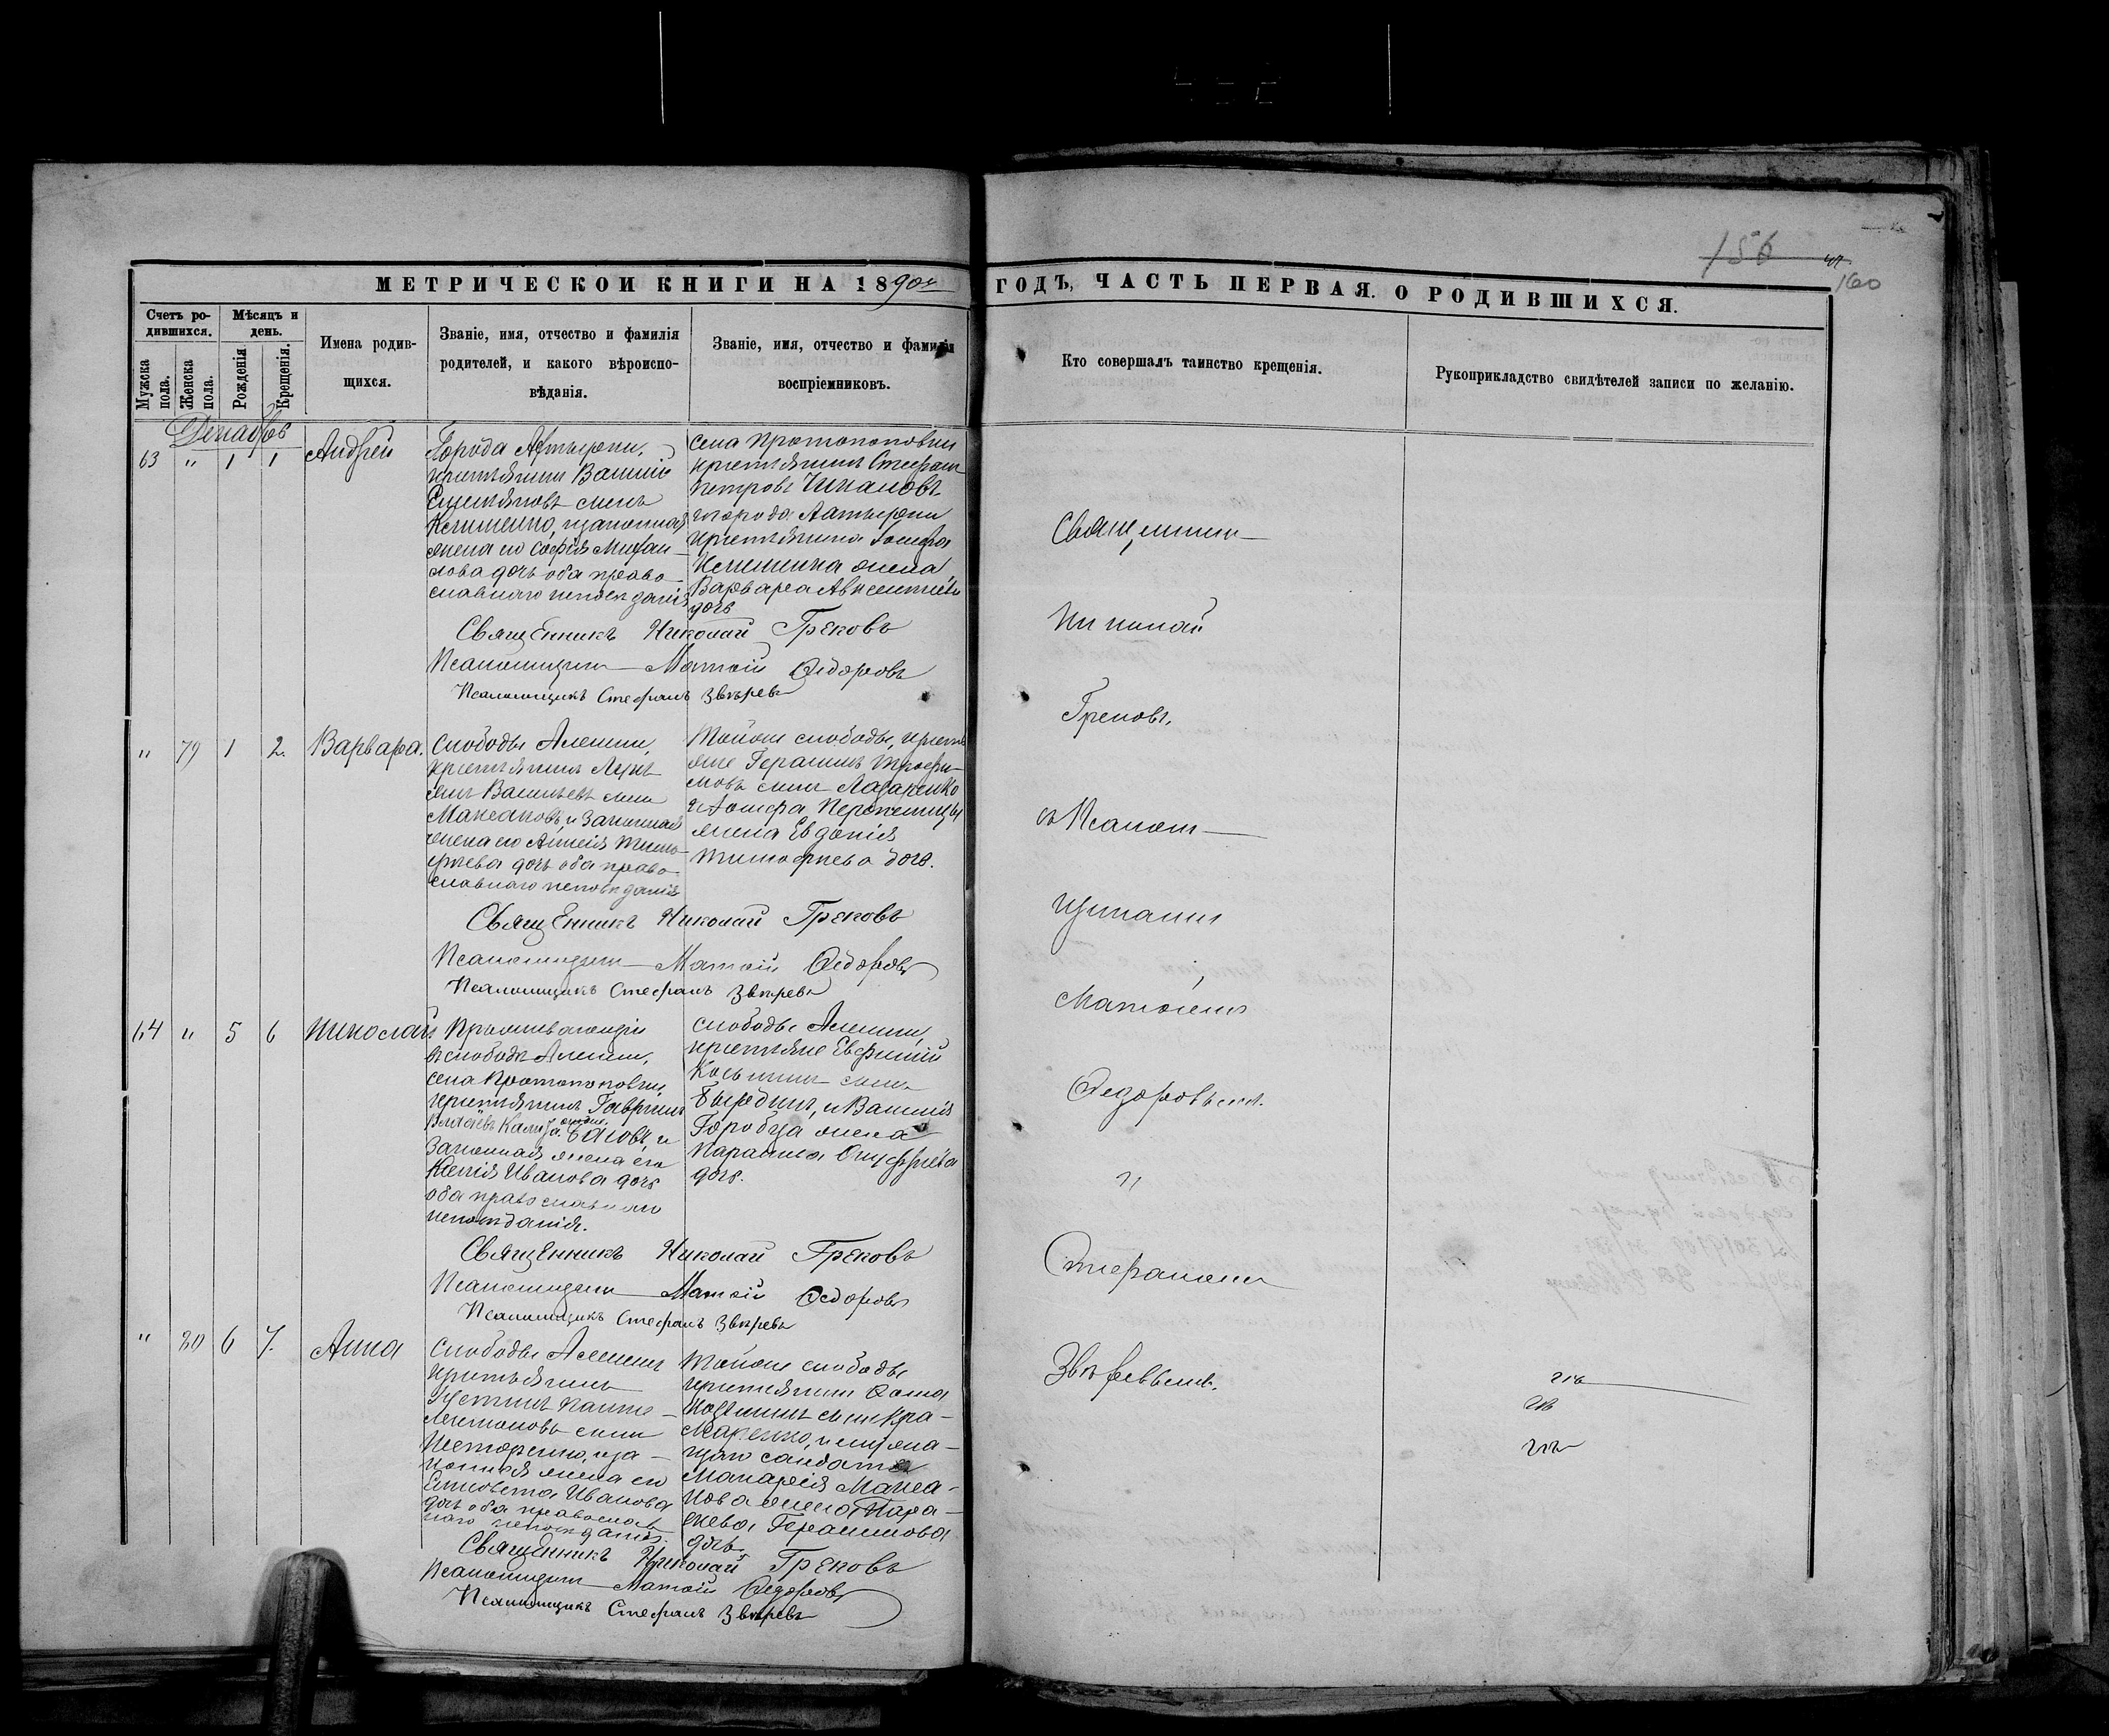 156
160
МЕТРИЧЕСКОЙ КНИГИ НА 1890й
ГОДЪ, ЧАСТЬ ПЕРВАЯ. О РОДИВШИХСЯ.
Счетъ ро-
дившихся.
Мужска
пола.
Женска
пола.
Мѣсяцъ и
день.
Рожденія
Крещенія.
Имена родив-
щихся.
Званіе, имя, отчество и фамилія
родителей, и какого вѣроиспо-
вѣданія.
Званіе, имя, отчество и фамилія
воспріемниковъ.
Кто совершалъ таинство крещенія.
Рукоприкладство свидѣтелей записи по желанію.
Декабрь
63 " 1 1 Андрей
Города Ахтырки,
крестьянинъ Василій
сынъ
законная
жена его Софія Михаи-
лова дочь оба право-
славнаго исповѣданія
села Протопоповки
крестьянинъ Стефанъ
Петровъ Чикаловъ
города Ахтырки
крестьянина Іосифа
жена
Варвара Авксентіева
дочь
Священникъ Николай Грековъ
Псаломщикъ Матѳій Ѳедоровъ
Псаломщикъ Стефанъ Звѣревъ
" 79 1 2 Варвара.
Слободы Алешни,
крестьянинъ Лукі-
янъ Васильевъ сынъ
Максаковъ, и законная
жена его Тимо-
фѣева дочь оба право-
славнаго исповѣданія
Тойже слободы, кресть-
яне Герасимъ Трофи-
мовъ сынъ Лазаренко
и Іосифа
жена Евдокія
Тимофѣева дочь.
Священникъ Николай Грековъ
Псаломщикъ Матѳій Ѳедоровъ
Псаломщикъ Стефанъ Звѣревъ
64 " 5 6 Николай.
Проживающій
въ слободѣ Алешни,
села Протопоповки,
крестьянинъ Гавріилъ
и
законная жена его
Ксенія Иванова дочь
оба православнаго
исповѣданія.
слободы Алешни,
крестьяне Евфимій
Косьминъ сынъ
и Василія
Горобца жена
Параскева Онуфріева
дочь.
Священникъ Николай Грековъ
Псаломщикъ Матѳій Ѳедоровъ
Псаломщикъ Стефанъ Звѣревъ
" 80 6 7. Анна
Слободы Алешни
крестьянинъ
Устинъ Панте-
леимоновъ сынъ
Нестеренко, и за-
конная жена его
Елисавета Иванова
дочь оба православ
наго исповѣданія.
Тойже слободы
крестьянинъ Ѳома
сынъ Кра-
маренко, и служа-
щаго солдата
Макарія Макса-
кова жена Пара-
скева Герасимова
дочь.
Священникъ Николай Грековъ
Псаломщикъ Матѳій Ѳедоровъ
Псаломщикъ Стефанъ Звѣревъ
Священникъ
Николай
Грековъ,
съ Псалом-
щиками
Матѳіемъ
Ѳедоровымъ.
и
Стефаномъ
Звѣревымъ.